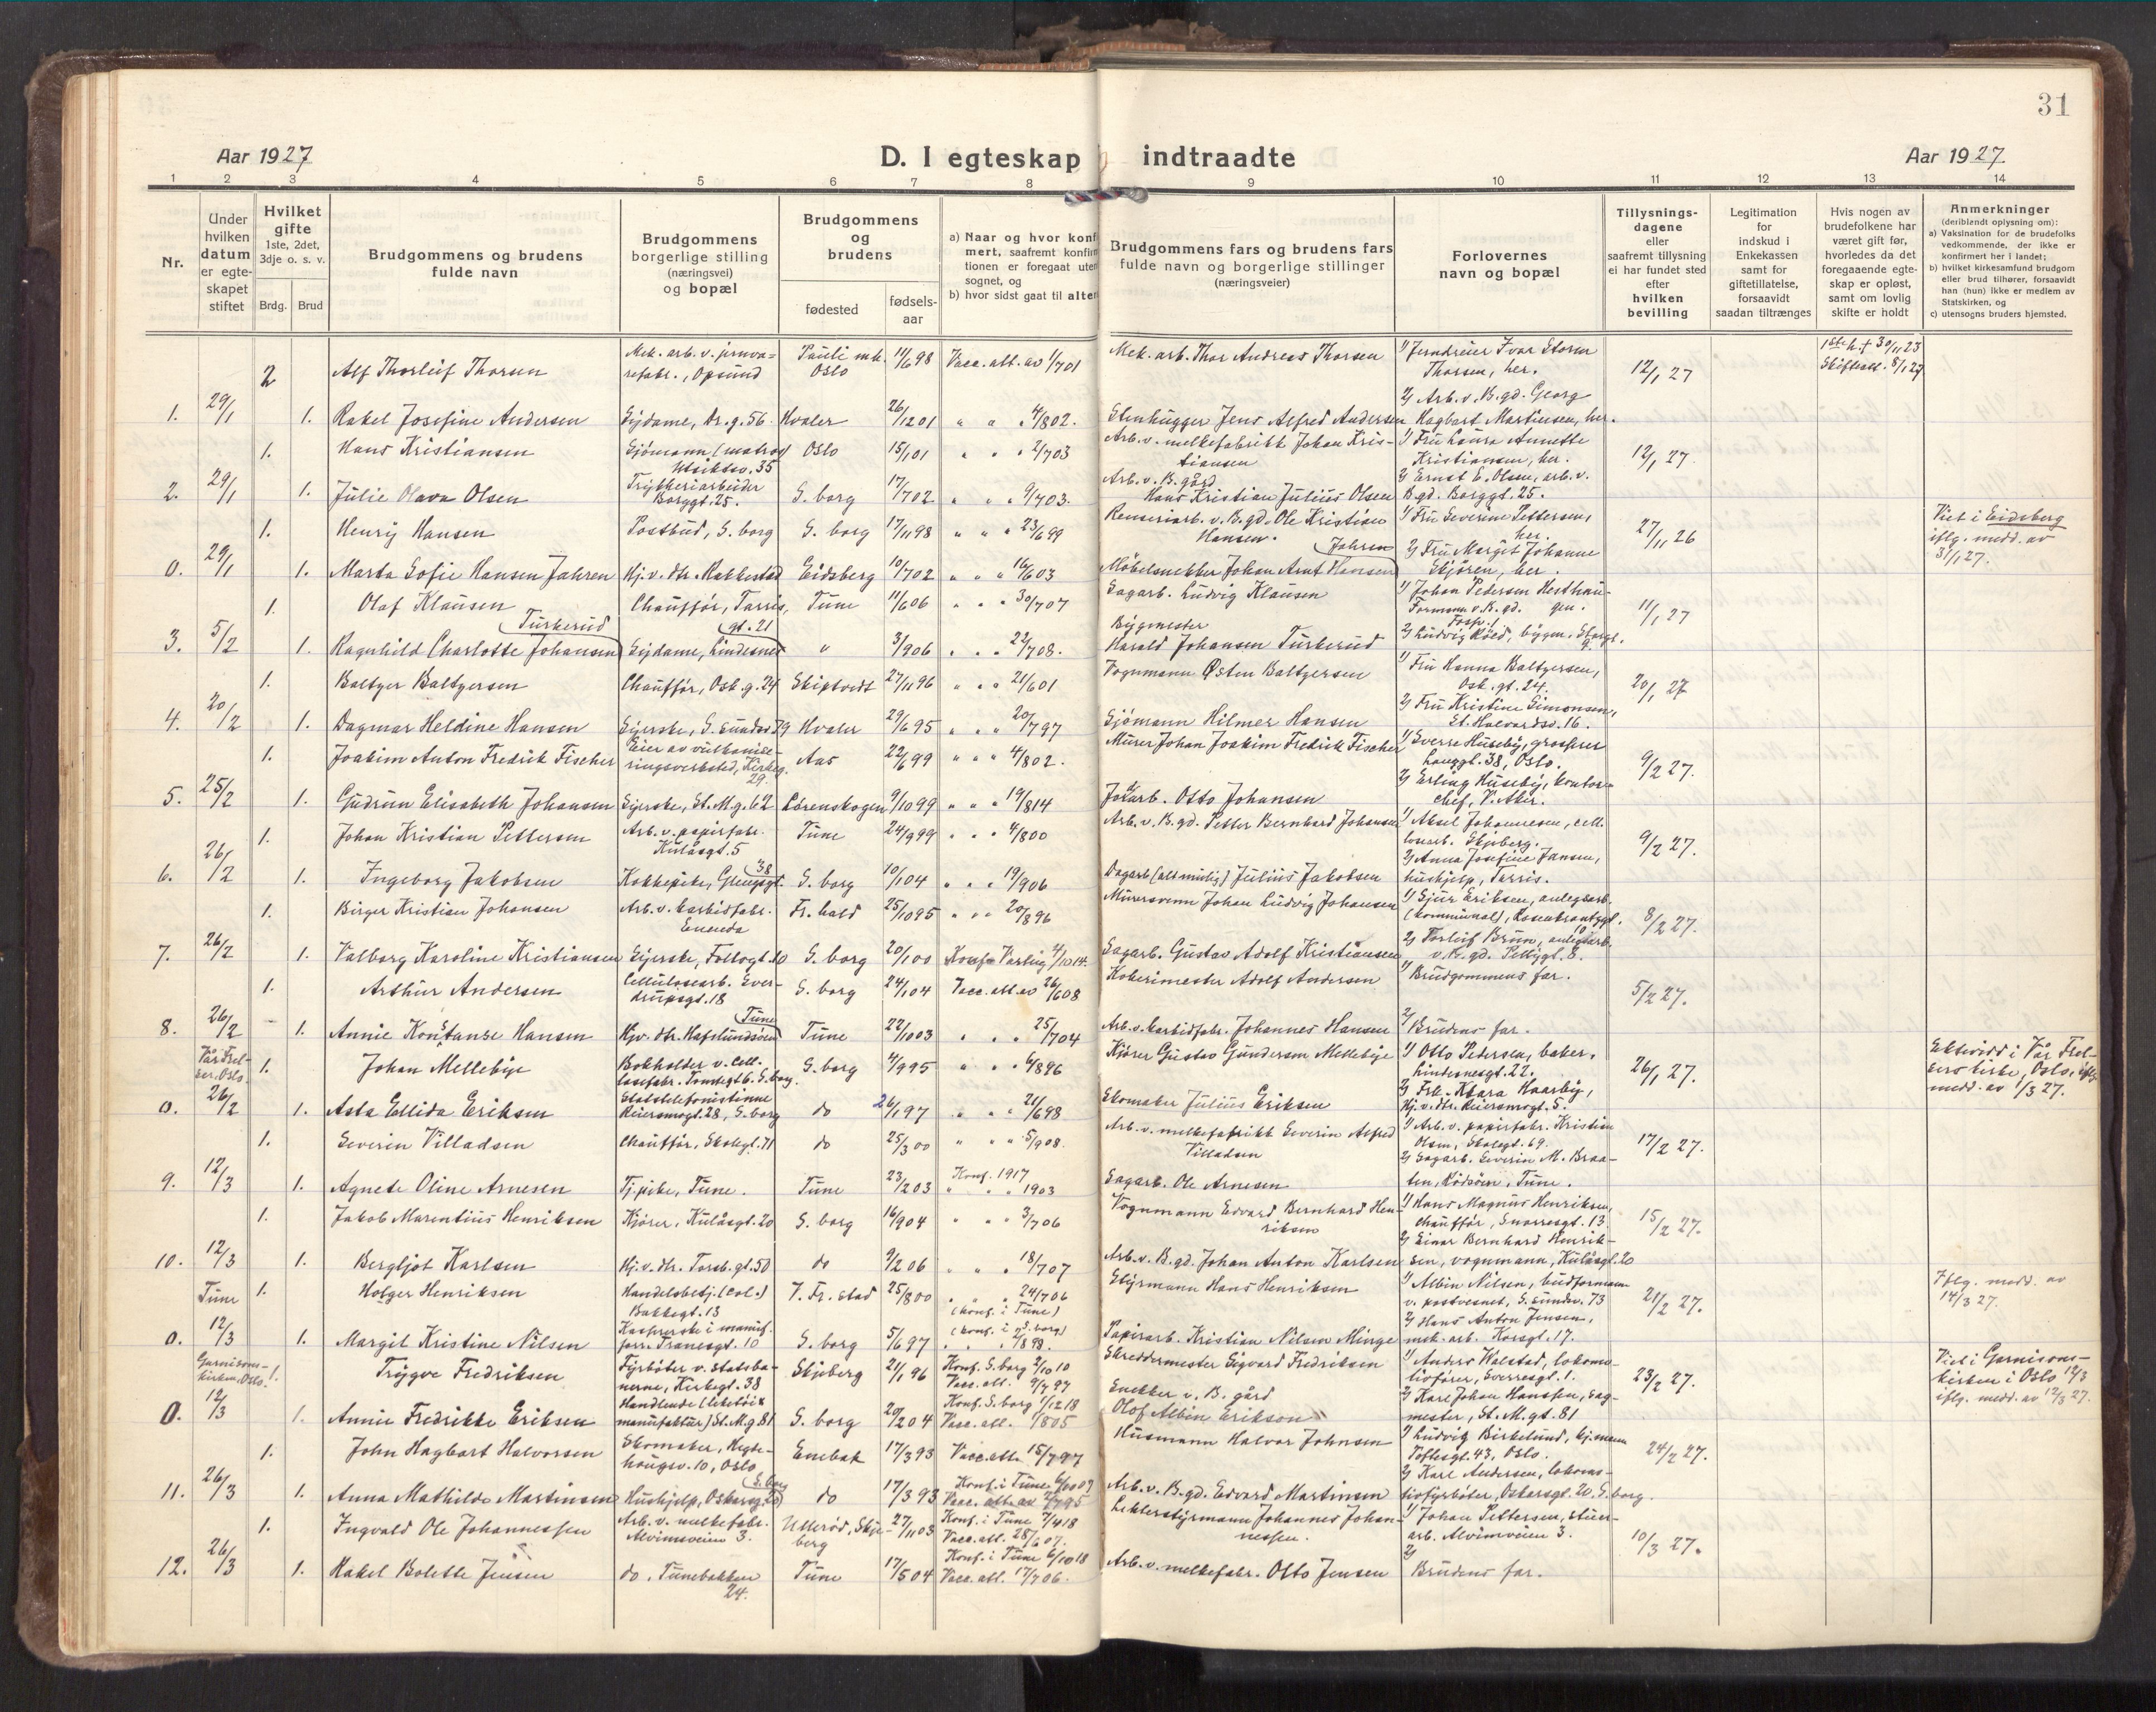 31
Aar 1927
D. I egteskap indtraadte
Aar 1927.
1 2 3 4 5 6 7 8 9 10 11 12 13 14
Nr.
Under hvilken datum er egte-skapet stiftet
Hvilket gifte
1ste, 2det, 3dje o. s. v.
Brdg. Brud
Brudgommens og brudens fulde navn
Brudgommens borgerlige stilling (næringsvei) og bopæl
Brudgommens og brudens
fødested
fødsels-aar
a) Naar og hvor konf
mert, saafremt konfir
tionen er foregaat uten
sognet, og
b) hvor sidst gaat til alter
Brudgommens fars og brudens fars
fulde navn og borgerlige stillinger
(næringsveier)
Forlovernes
navn og bopæl
Tillysnings-
dagene
eller
saafremt tillysning
ei har fundet sted
efter
hvilken
bevilling
Legitimation
for
indskud i
Enkekassen
samt for
giftetillatelse,
forsaavidt
saadan tiltrænges
Hvis nogen av
brudefolkene har
været gift før,
hvorledes da det
foregaaende egte-
skap er opløst,
samt om lovlig
skifte er holdt
Anmerkninger
(deriblandt oplysning om):
a) Vaksination for de brudefolks
vedkommende, der ikke er
konfirmert her i landet;
b) hvilket kirkesamfund brudgom
eller brud tilhører, forsaavidt
han (hun) ikke er medlem av
Statskirken, og
c) utensogns bruders hjemsted.
2 Alf Thorleif Thorsen
Mek. arb. v. jernva-
refabr., Opsund
Pauli mk.
Oslo
11/6 98
Vacc. att. av 1/7 01
Mek. arb. Thor Andreas Thorsen
1) Jerndreier Ivar Storm
Thorsen, her.
12/1 27
1ste h. † 30/11 23
Skifteatt. 8/1 27
1. 29/1 1. Rakel Josefine Andersen
Sydame, Dr.g. 56.
Hvaler
26/12 01
" " " 4/8 02.
Stenhugger Jens Alfred Andersen
2) Arb. v. B.gd. Georg
Hagbart Martinsen, her.
1. Hans Kristiansen
Sjömann (matros)
Utsiktsv. 35
Oslo
15/1 01
" " " 2/7 03
Arb. v. melkefabrikk Johan Kris-
tiansen
1) Fru Laura Annette
Kristiansen, her.
12/1 27.
2. 29/1 1. Julie Olava Olsen
Trykkeriarbeider
Borggt. 25.
S. borg
17/7 02
" " " 9/7 03.
Arb. v. B. gård
Hans Kristian Julius Olsen
2) Ernst E. Olsen, arb. v.
B.gd. Borggt. 25.
1. Henry Hansen
Postbud, S. borg
S. borg
17/11 98
" " " 23/6 99
Renseriarb. v. B.gd. Ole Kristian
Hansen.
1) Fru Severine Pettersen,
her.
27/11 26
Viet i Eidsberg
iflg. medd. av
31/1 27.
0. 29/1 1. Marta Sofie Hansen Jahren
Hj. v. dtr. Rakkestad
Eidsberg
10/7 02
" " " 16/6 03
Møbelsnekker Johan Arnt Hansen
Jahren
2) Fru Margit Johanne
Skjören, her.
1. Olaf Klausen
Chauffør, Tarris,
Tune
11/6 06
" " " 30/7 07
Sagarb. Ludvig Klausen
1) Johan Pedersen Hesthau-
Formann v. B. gd. gen.
11/1 27
3. 5/2 1. Ragnhild Charlotte Johansen
Turkerud
Sydame, Lindesnes
gt. 21
"
3/9 06
" " " 22/7 08.
Bygmester
Harald Johansen Turkerud
2) Ludvig Röed, bygm.
1. Baltzer Baltzersen
Chauffør, Osk. g. 24
Skiptvedt
27/11 96
" " " 21/6 01
Vognmann Østen Baltzersen
1) Fru Hanna Baltzersen,
Osk. gt. 24.
20/1 27
4. 20/2 1. Dagmar Heldine Hansen
Syerske, S. sundsv. 79
Hvaler
29/6 95
" " " 20/7 97
Sjömann Hilmer Hansen
2) Fru Kristine Simonsen,
St. Halvardsv. 16.
1. Joakim Anton Fredrik Fischer
Eier av vulkanise-
ringsverksted, Kirkeg.
29.
Aas
22/6 99
" " " 4/8 02.
Murer Johan Joakim Fredrik Fischer
1) Sverre Huseby, grosserer
Langgt. 38, Oslo.
9/2 27.
5. 25/2 1. Gudrun Elisabeth Johansen
Syerske, St. M.g. 62
Lørenskogen
9/10 99
" " " 19/8 14
Jordarb. Otto Johansen
2) Erling Huseby, kontor-
chef, V. Aker.
1. Johan Kristian Pettersen
Arb. v. papirfabr.
Kulåsgt. 5
Tune
24/9 99
" " " 4/8 00
Arb. v. B. gd. Petter Bernhard Johansen
1) Aksel Johannesen, cell.
losearb. Skjeberg.
9/2 27.
6. 26/2 1. Ingeborg Jakobsen
Kokkepike, Glengsgt. 38
S. borg
10/1 04
" " " 19/9 06
Dagarb (altmulig) Julius Jakobsen
2) Anna Josefine Jansen,
hushjelp, Tarris.
1. Birger Kristian Johansen
Arb. v. karbidfabr.
Enenda
Fr. hald
25/10 95
" " " 20/8 96
Murersvenn Johan Ludvig Johansen
1) Sjur Eriksen, anlegsarb.
(kommunal), Rosenkrantzgt. 10
8/2 27.
7. 26/2 1. Valborg Karoline Kristiansen
Syerske, Tollogt. 10
S. borg
20/1 00
Konf. Varteig 4/10 14.
Sagarb. Gustav Adolf Kristiansen
2) Torleif Brun, anlegsarb.
v. B. gd. Pellygt. 8.
1. Arthur Andersen
Cellulosearb. Sver-
drupsgt. 18
S. borg
24/1 04
Vacc. att. av 26/6 08
Kokerimester Adolf Andersen
1) Brudgommens far.
5/2 27.
8. 26/2 1. Annie Konstanse Hansen
Hjv. dtr. Hafslundsøen
Tune
Tune
22/10 03
" " 25/7 04
Arb. v. karbidfabr. Johannes Hansen
2) Brudens far.
Vår Frel-
ser. Oslo.
1. Johan Mellebye
Bokholder v. Cell-
losefabr. Tomtegt 6. S. borg.
S. borg
4/9 95
" " " 6/8 96
Kjører Gustav Gundersen Mellebye
1) Otto Pedersen, baker,
Lindesnesgt. 22.
26/1 27.
Ektevidd i Vår Frel-
sers kirke, Oslo, iflg.
medd. av 1/3 27.
0. 26/2 1. Asta Ellida Eriksen
Statstelefonistinne
Reiersmogt. 28, S. borg
do
26/1 97
" " " 21/6 98
Skomaker Julius Eriksen
2) Frk. Klara Haarby,
Hj. v. dtr. Reiersmogt. 5.
1. Severin Villadsen
Chauffør, Skolegt. 71
do
25/3 00
" " " 5/9 08.
Arb. v. melkefabrikk Severin Alfred
Villadsen
1) Arb. v. papirfabr. Kristian
Olsen, Skolegt. 69.
17/2 27.
9. 12/3 1. Agnete Oline Arnesen
Tj. pike, Tune.
Tune
23/2 03
Konf. 1917
" " " 1903
Sagarb. Ole Arnesen
2) Sagarb. Severin M. Braa-
ten, Rödsöen, Tune.
1. Jakob Marentius Henriksen
Kjører, Kulåsgt. 20
S. borg
16/9 04
" " 3/7 06
Vognmann Edvard Bernhard Hen-
riksen
1) Hans Magnus Henriksen,
chauffør, Snorresgt. 13.
15/2 27.
10. 12/3 1. Bergljot Karlsen
Hj. v. dtr. Torsb. gt. 50
do
9/2 06
" " " 18/7 07
Arb. v. B. gd. Johan Anton Karlsen
2) Einar Bernhard Henrik-
sen, vognmann, Kulåsgt. 20
Tune
1. Holger Henriksen
Handelsbetj. (col.)
Bakkegt. 13
V. Fr. stad
25/8 00
" " " 24/7 06
(konf. i Tune)
Styrmann Hans Henriksen
1) Albin Nilsen, budformann
v. postvesnet, S. sundsv. 73
21/2 27.
Iflg. medd. av
14/3 27.
0. 12/3 1. Margit Kristine Nilsen
Kasserske i manuf.
forr. Tranesgt. 10
S. borg
5/6 97
(konf. i S. borg)
" " " 2/8 99.
Papirarb. Kristian Nilsen Minge
2) Hans Anton Jensen,
mek. arb. Korsgt. 17.
Garnisons-
kirken, Oslo.
1. Trygve Fredriksen
Fyrbøter v. statsba-
nerne, Kirkegt. 38
Skjeberg
21/1 96
Konf. S. borg 2/10 10
Vacc. att. 9/7 97
Skreddermester Sigvard Fredriksen
1) Anders Walstad, lokomo-
tivfører, Sverresgt. 1.
23/2 27.
Viet i Garnisons-
kirken i Oslo 12/3
iflg. medd. av 12/3 27.
0. 12/3 1. Annie Fredrikke Eriksen
Handlende (leketøi &
manufaktur) St. M.g 81
S. borg
20/2 04
Konf. S. borg 1/12 18
Vacc. att. 1/8 05
Snekker v. B. gård
Olof Albin Erikson
2) Karl Johan Hanssen, sag-
mester, St. M. gt. 81
1. John Hagbart Halvorsen
Skomaker, Hegde-
haugsv. 10, Oslo
Enebak
17/3 93
Vacc. att. 15/7 97
Husmann Halvor Johnsen
1) Ludvig Birkelund, hj. mann
Toftesgt. 43, Oslo.
24/2 27.
11. 26/3 1. Anna Mathilde Martinsen
Hushjelp, Oskarsg. 20
S. borg
do
17/3 93
Konf. i Tune 6/10 07
Vacc. att. av 2/7 95
Arb. v. B. gd. Edvard Martinsen
2) Karl Andersen, lokomo-
tivfyrbøter, Oskarsgt. 20. S. borg.
1. Ingvald Ole Johannessen
Arb. v. melkefabr.
Alvimveien 3.
Ullerød, Skje-
berg
27/11 03
Konf. i Tune 7/4 18
Vacc. att. 28/6 07.
Lekterstyrmann Johannes Johan-
nessen.
1) Johan Pettersen, stuer-
arb. Alvimveien 3.
10/3 27.
12. 26/3 1. Rakel Bolette Jensen
do. Tunebakken
24.
Tune
17/5 04
Konf. i Tune 6/10 18
Vacc. att. 17/7 06.
Arb. v. melkefabr. Otto Jensen
2) Brudens far.